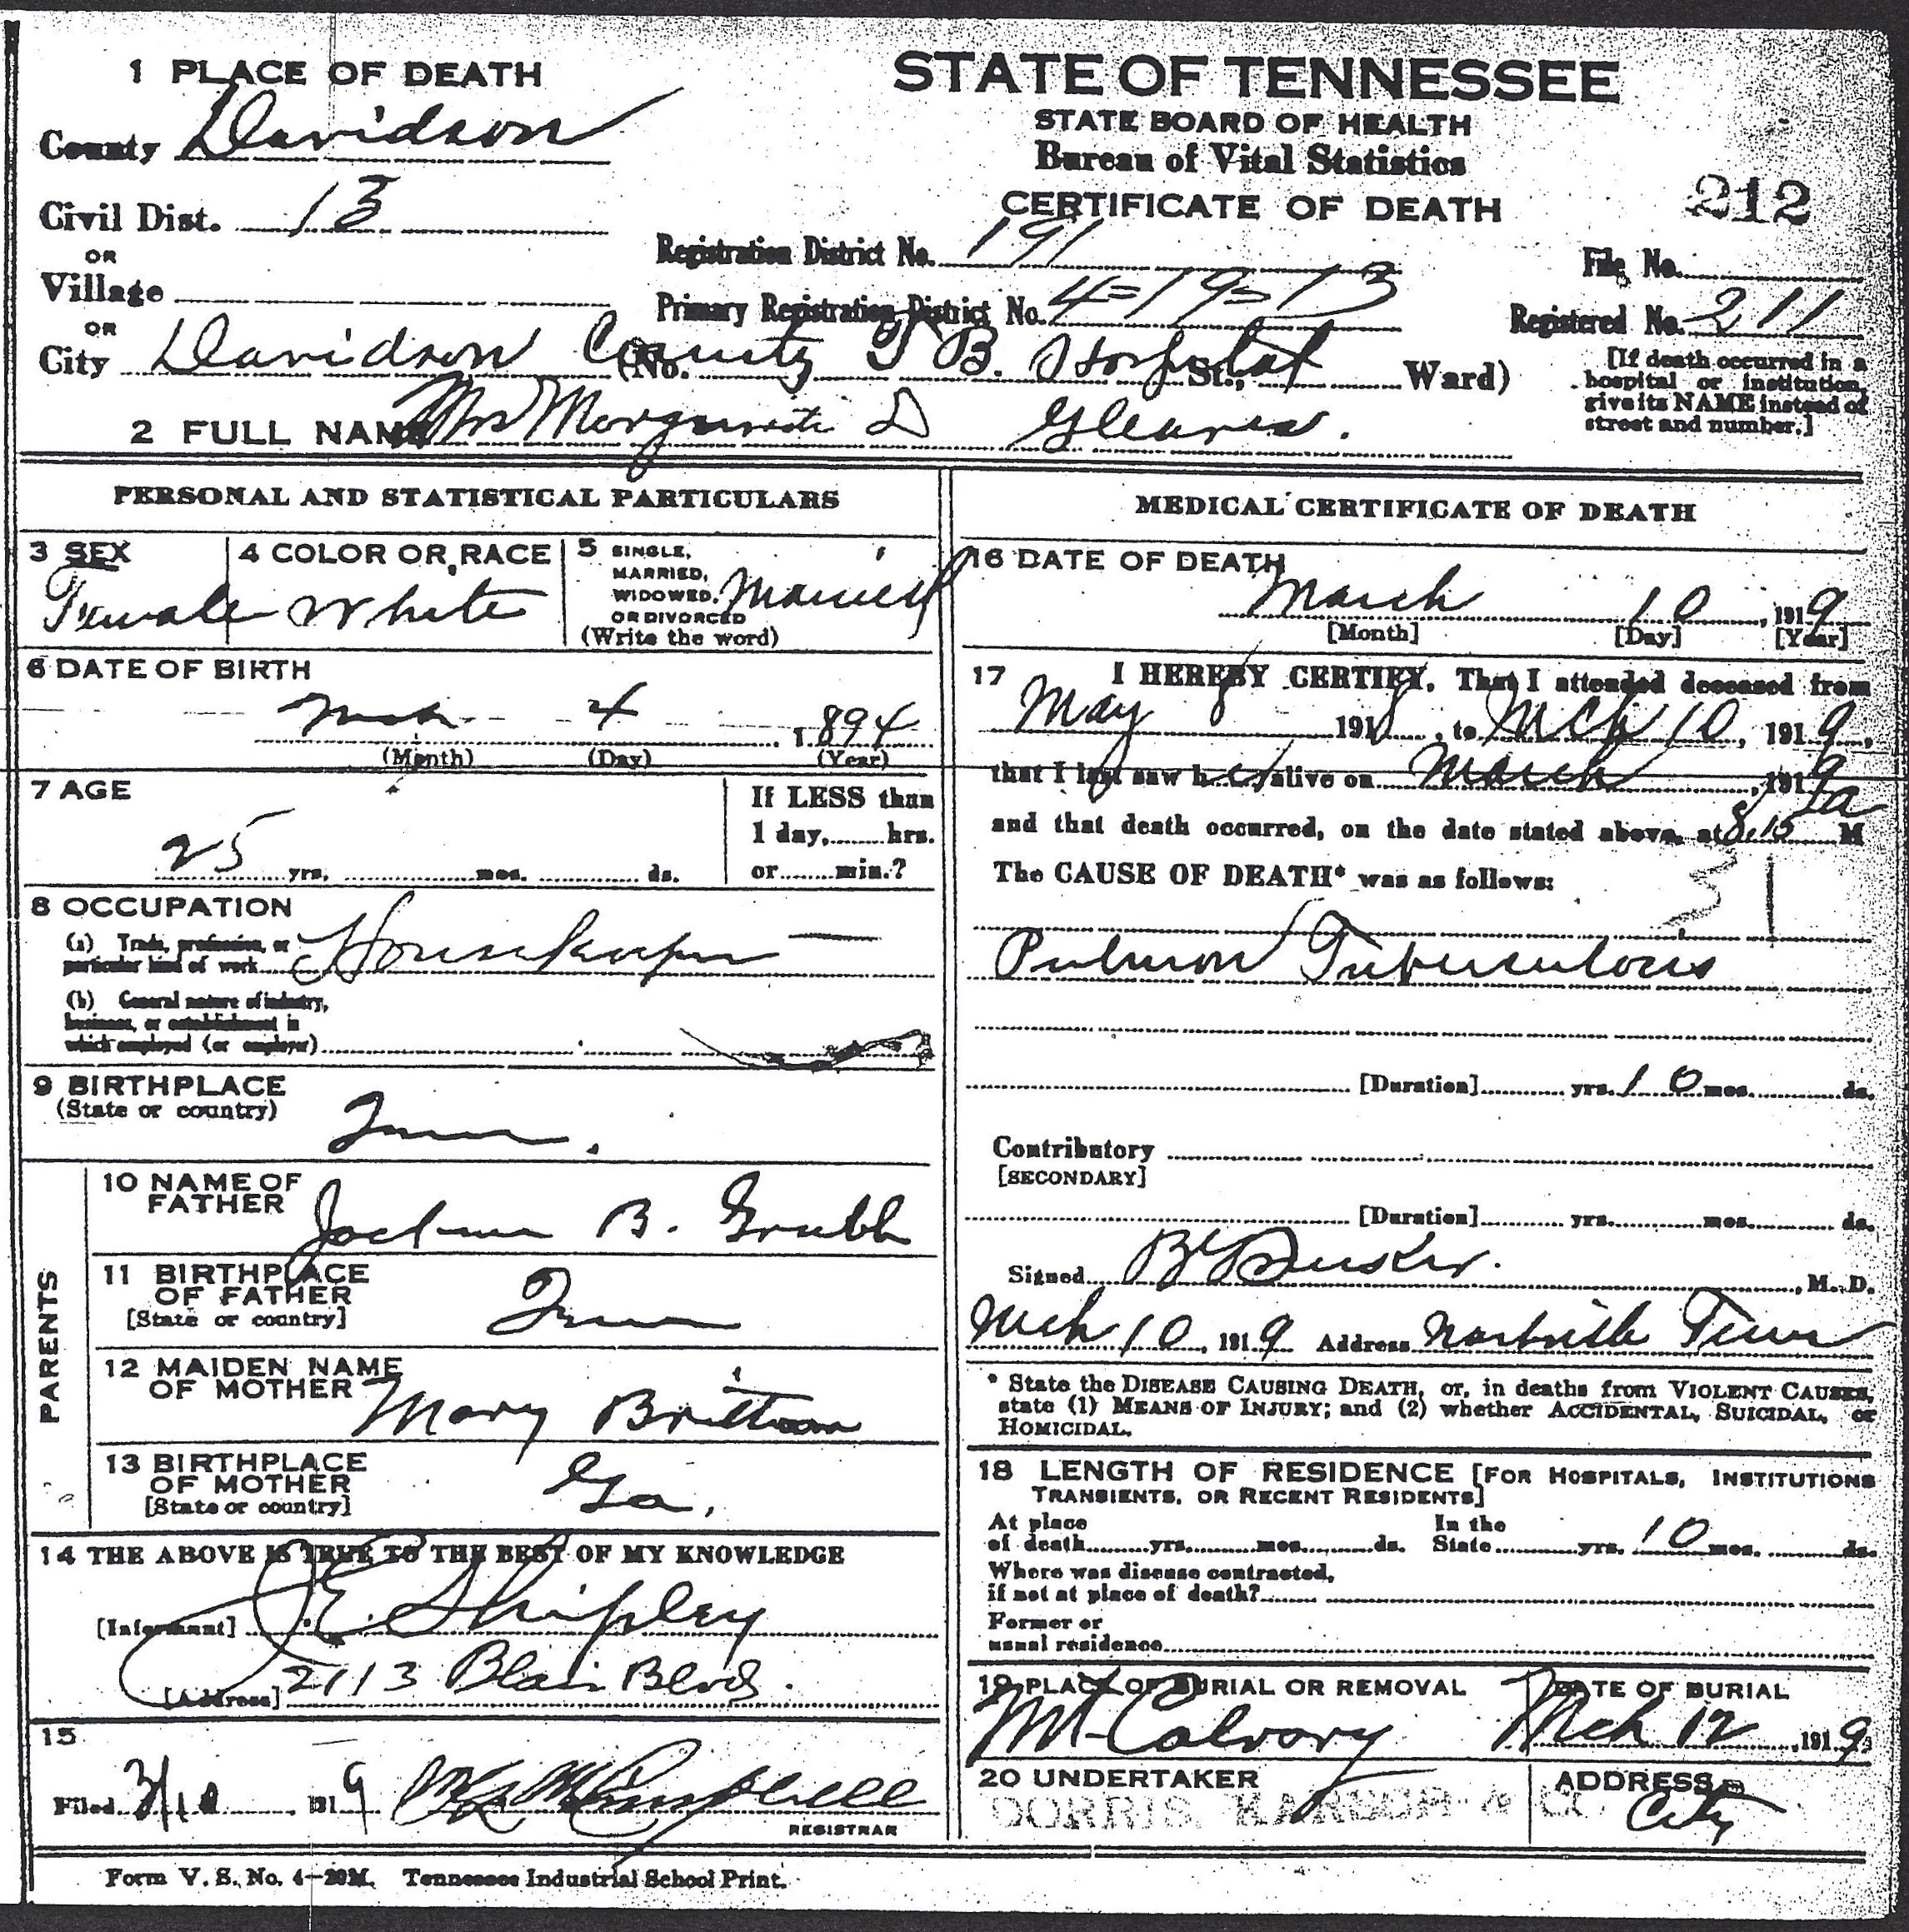 1 PLACE OF DEATH
County Davidson
Civil Dist. 13
OR
Village
OR
City Davidson County T B. Hospital (No. St., Ward)
STATE OF TENNESSEE
STATE BOARD OF HEALTH
Bureau of Vital Statistics
CERTIFICATE OF DEATH
212
Registration District No. 191
File No.
Primary Registration District No. 4=19=13
Registered No. 211
[If death occurred in a
hospital or institution,
give its NAME instead of
street and number.]
2 FULL NAME Mrs Morguirite D Gleaves.
PERSONAL AND STATISTICAL PARTICULARS
3 SEX
Female
4 COLOR OR RACE
White
5 SINGLE,
MARRIED,
WIDOWED,
OR DIVORCED
(Write the word)
Married
6 DATE OF BIRTH
4 1894
(Month) (Day) (Year)
7 AGE
25 yrs. mos. ds.
If LESS than
1 day, hrs.
or min.?
8 OCCUPATION
(a) Trade, profession, or
particular kind of work Housekeeper
(b) General nature of industry,
business, or establishment in
which employed (or employer)
9 BIRTHPLACE
(State or country)
Tenn.
PARENTS
10 NAME OF
FATHER
B. Grubb
11 BIRTHPLACE
OF FATHER
[State or country]
Tenn
12 MAIDEN NAME
OF MOTHER
Mary Brittain
13 BIRTHPLACE
OF MOTHER
[State or country]
Ga.
14 THE ABOVE IS TRUE TO THE BEST OF MY KNOWLEDGE
[Informant] J E. Shipley
[Address] 2113 Blair Blvd.
15
Filed 3/10, 1919 Campbell
REGISTRAR
MEDICAL CERTIFICATE OF DEATH
16 DATE OF DEATH
March 10, 1919
[Month] [Day] [Year]
17 I HEREBY CERTIFY, That I attended deceased from
May 8 1918, to Mch 10, 1919,
that I last saw her alive on March 9, 1919
and that death occurred, on the date stated above, at 8.15 a M
The CAUSE OF DEATH* was as follows:
31
Pulmon Tuberculous
[Duration] yrs. 10 mos. ds.
Contributory
[SECONDARY]
[Duration] yrs. mos. ds.
Signed, M. D.
Mch 10, 1919 Address Nashville Tenn
* State the DISEASE CAUSING DEATH, or, in deaths from VIOLENT CAUSES,
state (1) MEANS OF INJURY; and (2) whether ACCIDENTAL, SUICIDAL, or
HOMICIDAL.
18 LENGTH OF RESIDENCE [FOR HOSPITALS, INSTITUTIONS
TRANSIENTS, OR RECENT RESIDENTS]
At place
of death yrs. mos. ds.
In the
State yrs. 10 mos. ds.
Where was disease contracted,
if not at place of death?
Former or
usual residence
19 PLACE OF BURIAL OR REMOVAL
Mt Calvory
DATE OF BURIAL
Mch 12, 1919
20 UNDERTAKER
DORRIS, KARSCH & CO
ADDRESS
City
Form V. S. No. 4—20M. Tennessee Industrial School Print.